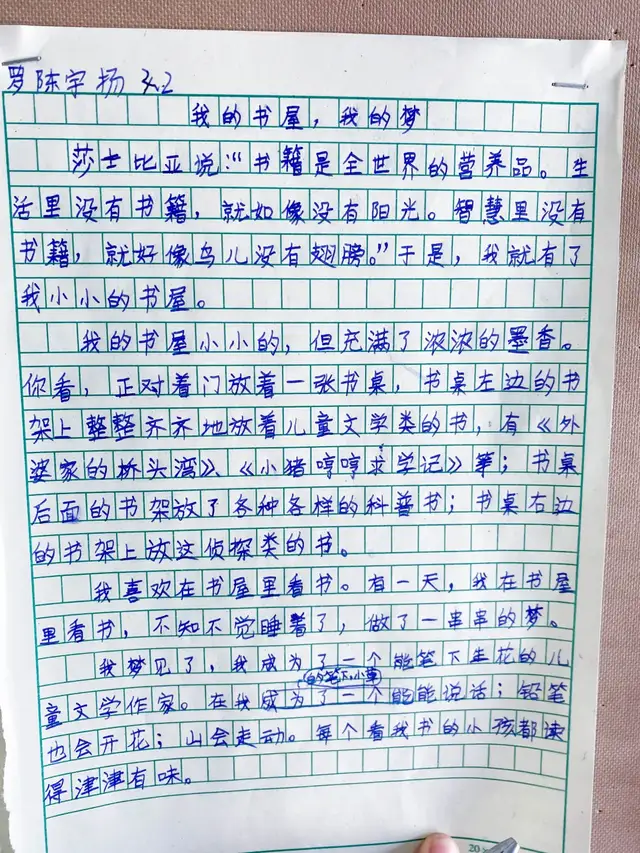 罗陈宇扬 3.2
我的书屋，我的梦
莎士比亚说：“书籍是全世界的营养品。生
活里没有书籍，就如像没有阳光。智慧里没有
书籍，就好像鸟儿没有翅膀。”于是，我就有了
我小小的书屋。
我的书屋小小的，但充满了浓浓的墨香。
你看，正对着门放着一张书桌，书桌左边的书
架上整整齐齐地放着儿童文学类的书，有《外
婆家的桥头湾》、《小猪哼哼求学记》等；书桌
后面的书架放了各种各样的科普书；书桌右边
的书架上放这侦探类的书。
我喜欢在书屋里看书。有一天，我在书屋
里看书，不知不觉睡着了，做了一串串的梦。
我梦见了，我成为了一个能笔下生花的儿
的笔下，小草
童文学作家。在我成为了一个能能说话；铅笔
也会开花；山会走动。每个看我书的小孩都读
得津津有味。